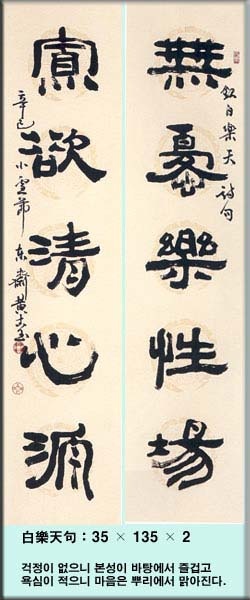 無憂樂性場
白樂天詩句
寡欲清心源
辛巳小雪節 東齋黃
白樂天句：35 × 135 × 2
걱정이 없으니 본성이 바탕에서 즐겁고
욕심이 적으니 마음은 뿌리에서 맑아진다.